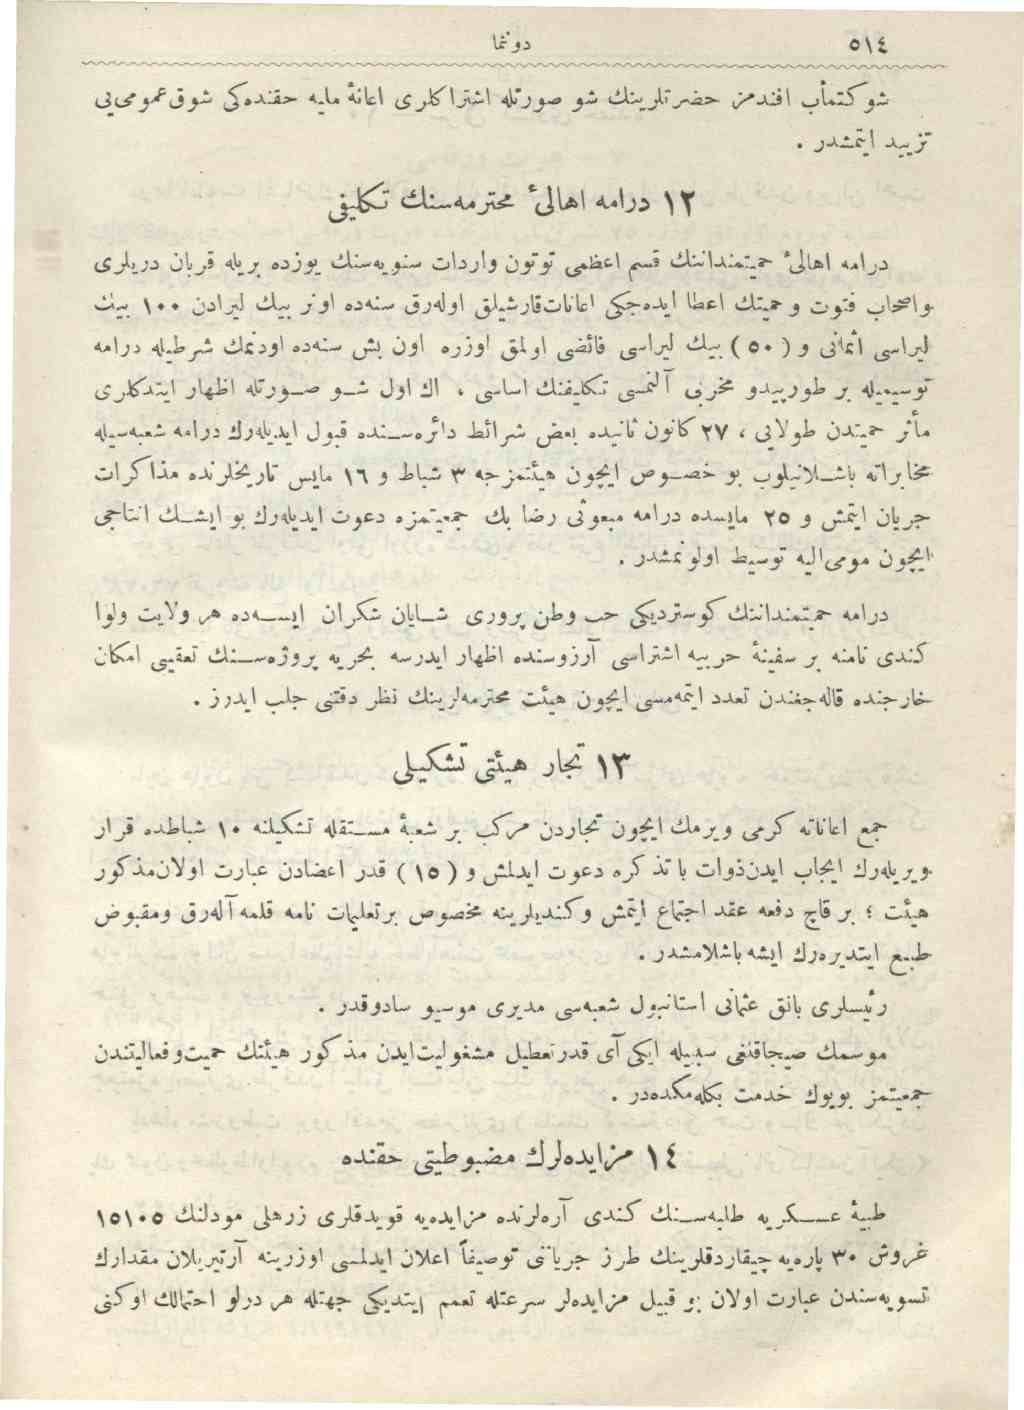 ٥١٤
دونما
شوكتمأب افندمز حضرتلرينك شو صورتله اشتراكلرى اعانۀ مليه حقنده‌كى شوق عمومى‌يى
تزييد ايتمشدر .
١٢ درامه اهالئ محترمه‌سنك تكليفى
درامه اهالئ حميتمنداننك قسم اعظمى توتون واردات سنويه‌سنك يوزده بريله قربان دريلرى
واصحاب فتوت و حميتك اعطا ايده‌جكى اعانات قارشيلق اوله‌رق سنه‌ده اونر بيك ليرادن ١٠٠ بيك
ليراسى اثمانى و (٥٠) بيك ليراسى فائضى اولمق اوزره اون بش سنه‌ده اودنمك شرطيله درامه
توسيميله بر طورپيدو مخربى آلنمسى تكليفنك اساسى ، اك اول شو صورتله اظهار ايتدكلرى
مأثر حميتدن طولايى ، ٢٧ كانون ثانيده بعض شرائط دائره‌سنده قبول ايديله‌رك درامه شعبه‌سيله
مخابراته باشلانيلوب بو خصوص ايچون هيئتمزجه ٣ شباط و ١٦ مايس تاريخلرنده مذاكرات
جريان ايتمش و ٢٥ مايسده درامه مبعوثى رضا بك جمعيتمزه دعوت ايديله‌رك بو ايشك انتاجى
ايچون مومى‌اليه توسيط اولونمشدر .
درامه حميتمنداننك كوستردیكى حب وطن پرورى شايان شكران ايسه‌ده هر ولايت ولوا
كندى نامنه بر سفينۀ حربيه اشتراسى آرزوسنده اظهار ايدرسه بحريه پروژه‌سنك تعقيبى امكان
خارجنده قاله‌جغندن تعدد ايتمه‌مسى ايچون هيئت محترمه‌لرينك نظر دقتنى جلب ايدرز .
١٣ تجار هيئتى تشكيلى
جمع اعاناته كرمى ويرمك ايچون تجاردن مركب بر شعبۀ مستقله تشكيلنه ١٠ شباطده قرار
ويريله‌رك ايجاب ايدن ذوات با تذكره دعوت ايدلمش و (١٥) قدر اعضادن عبارت اولان مذكور
هيئت ؛ بر قاچ دفعه عقد اجتماع ايتمش وكنديلرينه مخصوص بر تعليمات نامه قلمه آله‌رق ومقبوض
طبع ايتديره‌رك ايشه باشلامشدر .
رئيسلرى بانق عثمانى استانبول شعبه‌سى مديرى موسيو سادوقدر .
موسمك صيجاقلغى سببيله ايكى آى قدر تعطيل مشغوليت ايدن مذكور هيئتك حميت وفعاليتندن
جمعيتمز بويوك خدمت بكله‌مكده‌در .
١٤ مزايده‌لرك مضبوطيتى حقنده
طبيۀ عسكريه طلبه‌سنك كندى آره‌لرنده مزايده‌يه قويدقلرى زرهلى مودلنك ١٥١٠٥
غروش ٣٠ پاره‌يه چيقاردقلرينك طرز جريانى توصيفاً اعلان ايدلمسى اوزرينه آرتيريلان مقدارك
تسويه‌سندن عبارت اولان بو قبيل مزايده‌لر سرعتله تعمم ايتديكى جهتله هر درلو احتمالك اوكنى